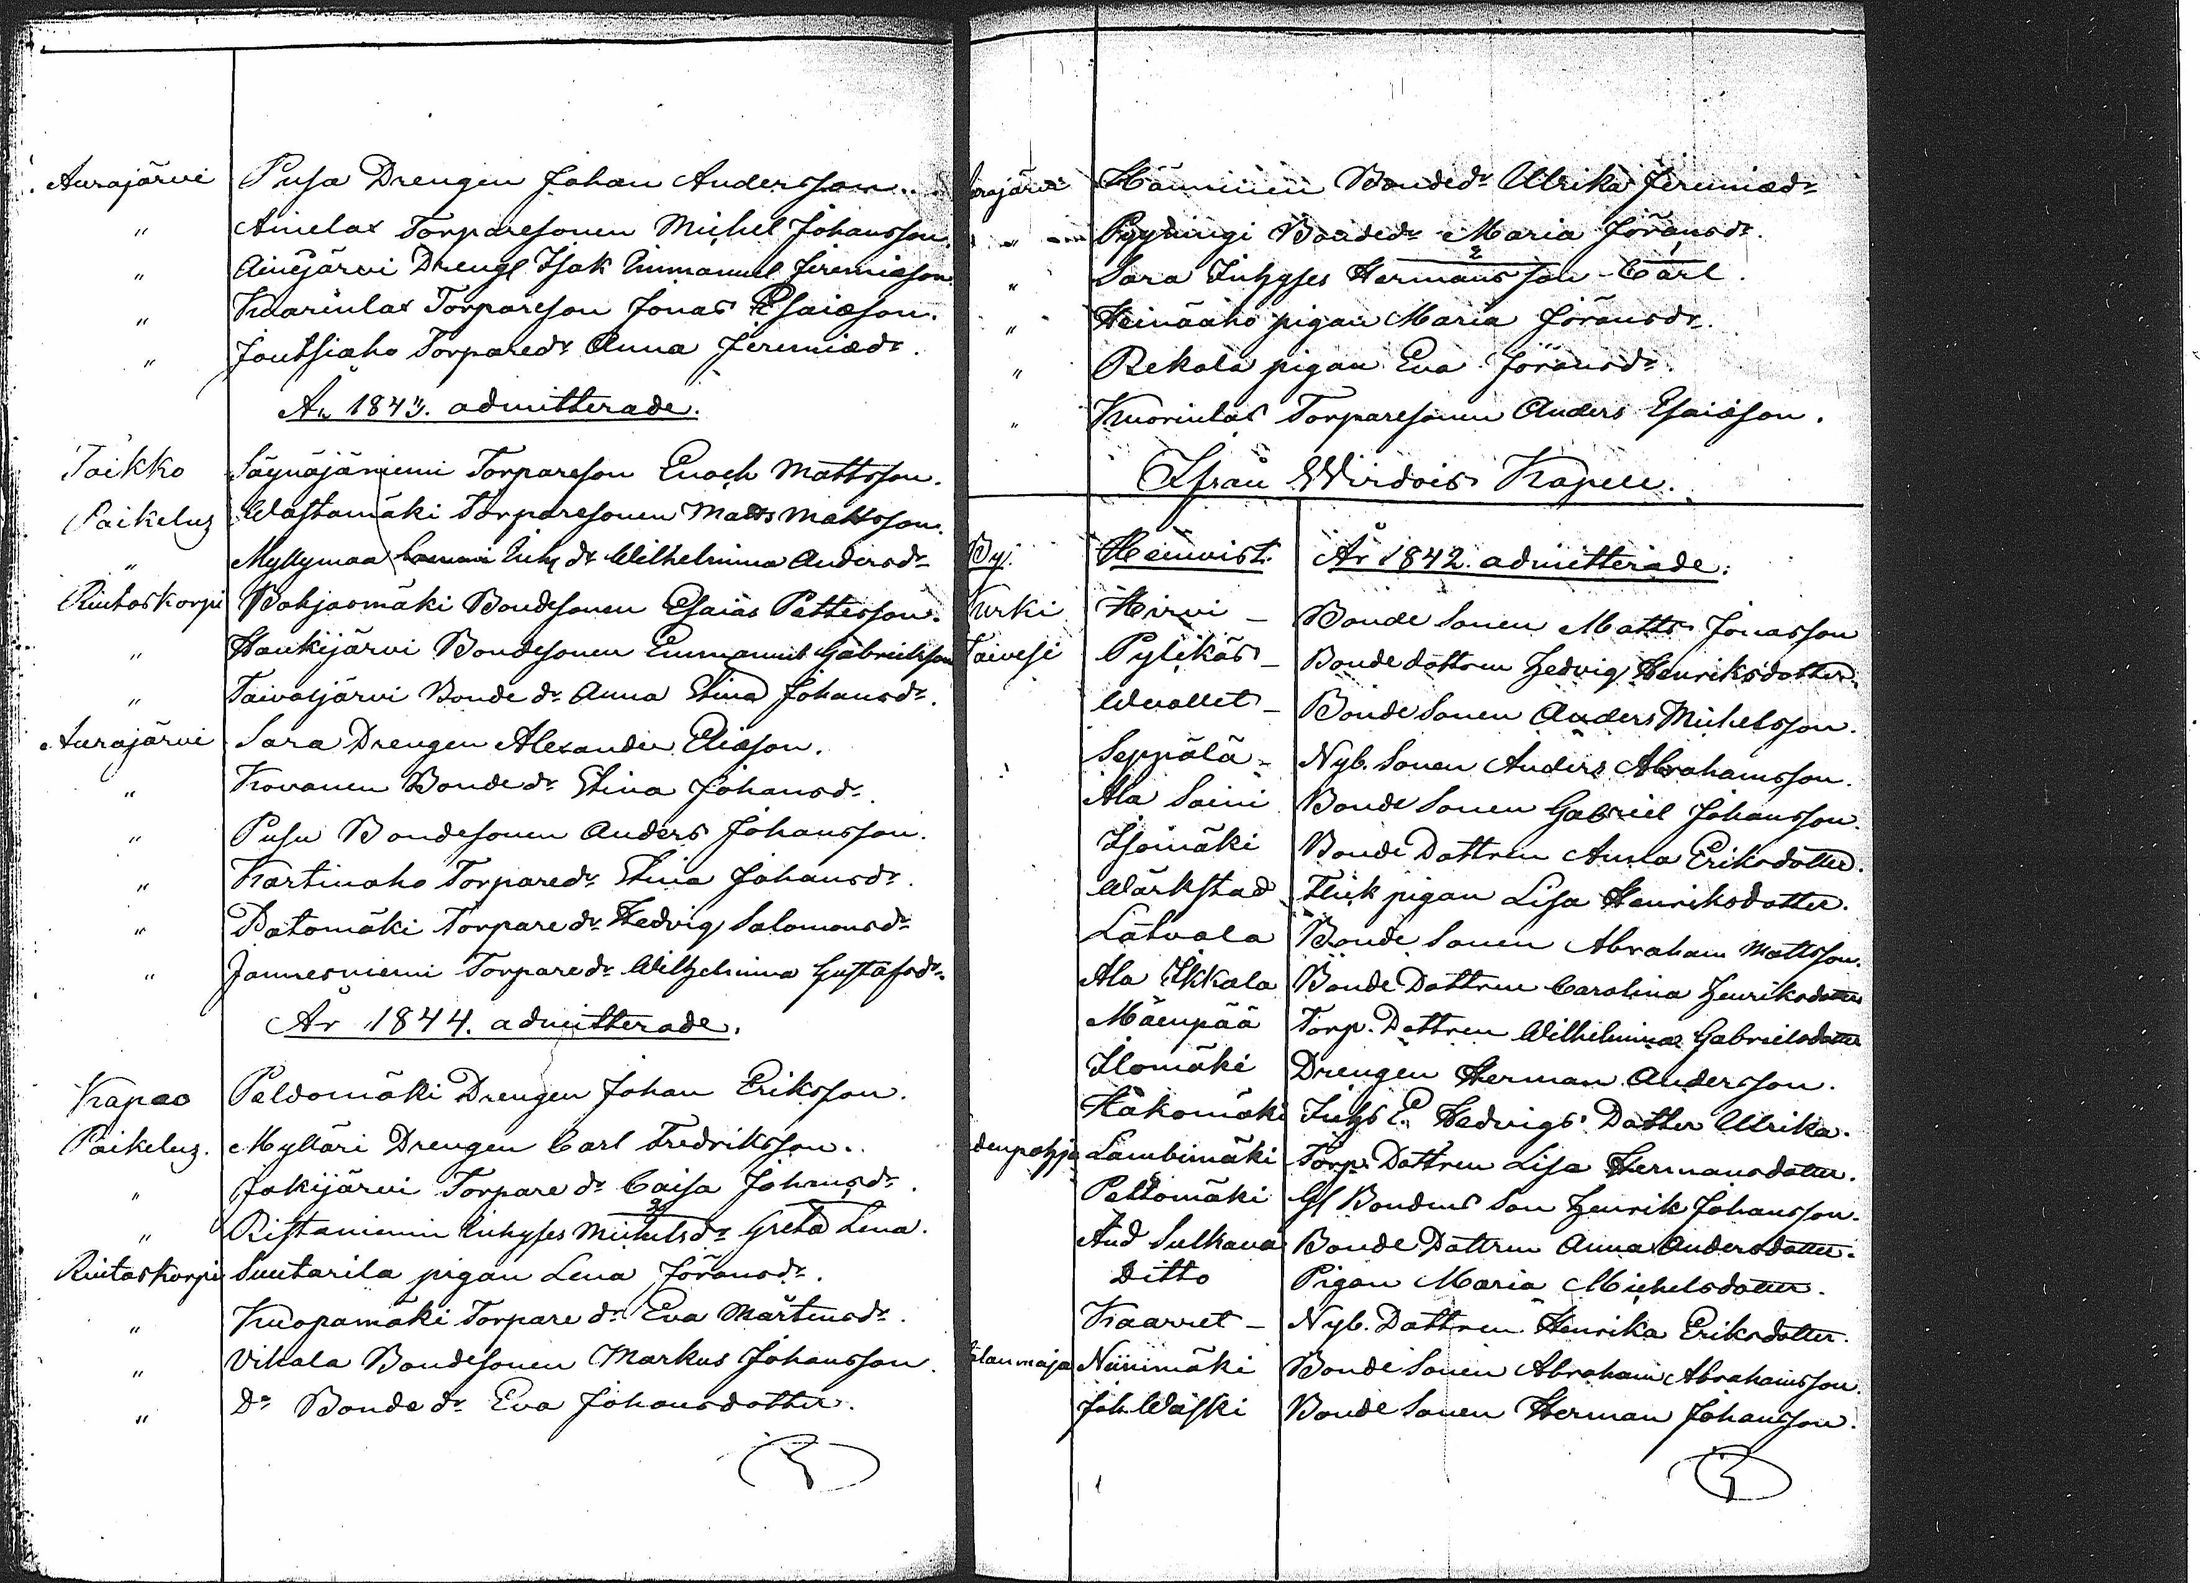 Aurajärvi Pusa Drengen Johan Andersson.
" Ainelax Torparesonen Michel Johansson
" Ainejärvi Drengl Isak Emmanuel Jeremiæson
" Kuarinlax Torpareson Jonas Esaiæson.
" Joutsiaho Torparedr Anna Jeremiædr.
År 1843. admitterade.
Toikko Säynäjäniemi Torpareson Enoch Mattsson.
Paikeluz Wästamäki Torparesonen Matts Mattsson.
" Myllymaa Inhs dr Wilhelmina Andersdr
Riutaskorpi Pohjaomäki Bondesonen Esaias Pettersson.
" Haukijärvi Bondesonen Emmanuel Gabrielsson
" Taivaljärvi Bonde dr Anna Stina Johansdr.
Aurajärvi Sara Drengen Alexander Eliæson.
" Kovanen Bonde dr Stina Johansdr.
" Pusu Bondesonen Anders Johansson.
" Kartinaho Torparedr Stina Johansdr.
" Patomäki Torpare dr Hedvig Salomonsdr
" Jannesniemi Torpare dr Wilhelmina Gustafsdr
År 1844. admitterade.
Kapas Peldomäki Drengen Johan Eriksson.
Paikeluz. Mylläri Drengen Carl Fredriksson.
" Jokijärvi Torpare dr Caisa Johansdr.
" Ristaniemi Inhyses Michelsdr Greta Lena.
Riutaskorpi Suutarila pigan Lena Jöransdr.
" Kuopamäki Torpare dr Eva Mårtensdr.
" Vihala Bondesonen Markus Johansson.
" Do Bonde dr Eva Johansdotter.
rajärvi Hänninen Bondedr Ulrika Jeremiædr
" Pyydningi Bondedr Maria Jöransdr.
" Sara Inhyses Hermansson Carl.
" Heinääho pigan Maria Jöransdr.
" Rekola pigan Eva Jöransdr.
" Kuorinlas Torparesonen Anders Esaiæson.
Ifrån Wirdois Kapell.
By. Hemvist. År 1842. admitterade.
Kurki Hirvi - Bonde Sonen Matts Jonasson
Toivesi Pylikäs - Bonde dottren Hedvig Henriksdotter.
Wuollet - Bonde Sonen Anders Michelsson.
Seppälä - Nyb. Sonen Anders Abrahamsson.
Ala Soini Bonde Sonen Gabriel Johansson.
Isomäki Bonde Dottren Anna Eriksdotter.
Wärkstad Flick pigan Lisa Henriksdotter.
Latvala Bonde Sonen Abraham Mattsson.
Ala Ikkala Bonde Dottren Carolina Henriksdotter
Mäenpää Torp. Dottren Wilhelmina Gabrielsdotter
Ilomäki Drengen Herman Andersson.
Häkomäki Inhs E. Hedvigs Dotter Ulrika.
denpohja Lambimäki Torp. Dottren Lisa Hermansdotter.
Peltomäki Gl Bondens Son Henrik Johansson.
And Sulkava Bonde Dottren Anna Andersdotter.
Ditto Pigan Maria Michelsdotter.
Kaarret - Nyb. Dottren Henrika Eriksdotter.
lanmaja Niinimäki Bonde Sonen Abraham Abrahamsson.
Joh. Wäski Bonde Sonen Herman Johansson.